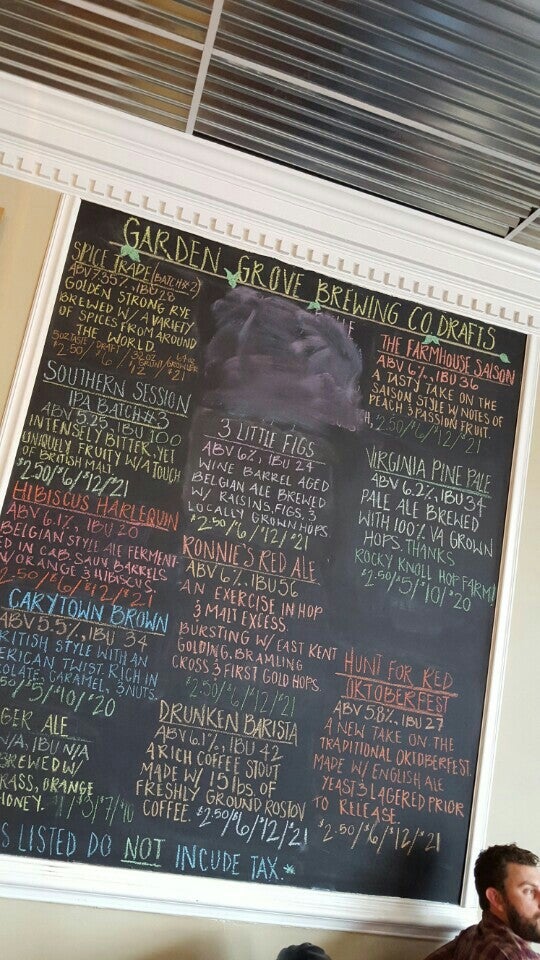 GARDEN GROVE BREWING CO. DRAFTS
SPICE TRADE (BATCH #2)
ABV 7.35%, IBU 28
GOLDEN STRONG RYE
BREWED W/ A VARIETY
OF SPICES FROM AROUND
THE WORLD.
$2.50/$6/$12/$21
SOUTHERN SESSION
IPA BATCH #3
ABV 5.25, IBU 100
INTENSELY BITTER, YET
UNIQUELY FRUITY W/ A TOUCH
OF BRITISH MALT.
$2.50/$6/$12/$21
HIBISCUS HARLEQUIN
ABV 6.1%, IBU 20
BELGIAN STYLE ALE FERMENT-
ED IN CAB. SAUV BARRELS
W/ ORANGE & HIBISCUS.
2.50/$6/$12/$21
CARYTOWN BROWN
ABV 5.5%, IBU 34
BRITISH STYLE WITH AN
ERICAN TWIST. RICH IN
OLATE, CARAMEL, & NUTS.
50/$5/$10/$20
GER ALE
N/A, IBU N/A
BREWED W/
RASS, ORANGE
HONEY.
3 LITTLE FIGS
ABV 6%, IBU 24
WINE BARREL AGED
BELGIAN ALE BREWED
W/ RAISINS, FIGS, &
LOCALLY GROWN HOPS.
$2.50/$6/$12/$21
RONNIE'S RED ALE
ABV 6%, IBU 56
AN EXERCISE IN HOP
& MALT EXCESS.
BURSTING W/ EAST KENT
GOLDING, BRAMLING
CROSS & FIRST GOLD HOPS.
$2.50/$6/$12/$21
DRUNKEN BARISTA
ABV 6.1%, IBU 42
A RICH COFFEE STOUT
MADE W/ 15 lbs. OF
FRESHLY GROUND ROSTOV
COFFEE. $2.50/$6/$12/$21
THE FARMHOUSE SAISON
ABV 6%, IBU 36
A TASTY TAKE ON THE
SAISON STYLE W/ NOTES OF
PEACH & PASSION FRUIT.
$2.50/$6/$12/$21
VIRGINIA PINE PALE
ABV 6.2%, IBU 34
PALE ALE BREWED
WITH 100% VA GROWN
HOPS. THANKS
ROCKY KNOLL HOP FARM!
$2.50/$5/$10/$20
HUNT FOR RED
OKTOBERFEST
ABV 5.8%, IBU 27
A NEW TAKE ON THE
TRADITIONAL OKTOBERFEST.
MADE W/ ENGLISH ALE
YEAST & LAGERED PRIOR
TO RELEASE.
$2.50/$6/$12/$21
S LISTED DO NOT INCUDE TAX.*